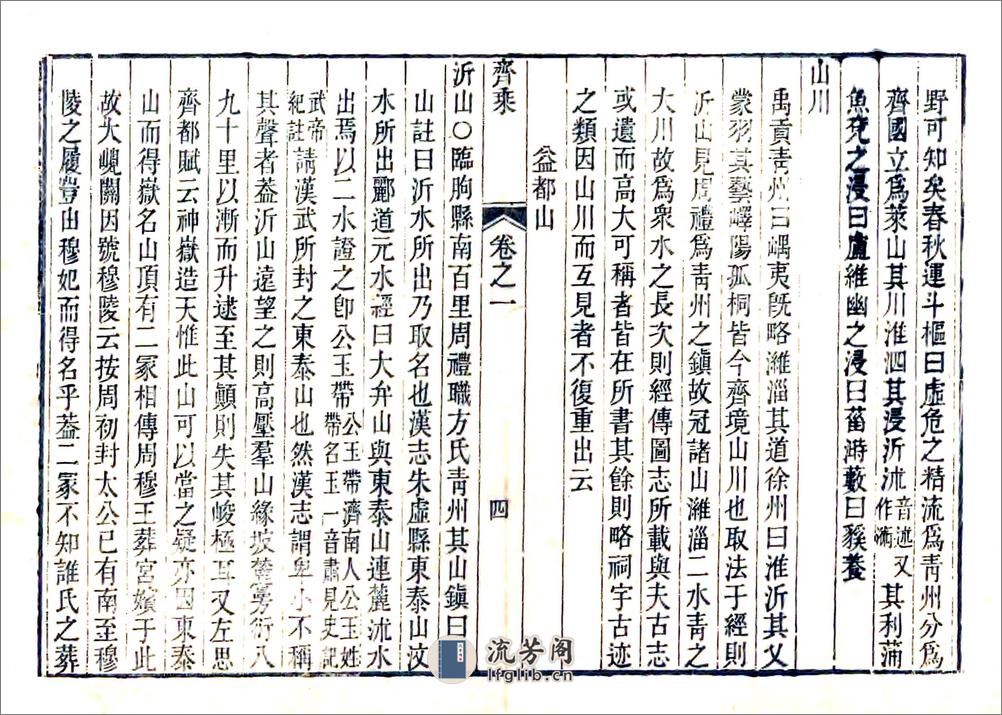 野可知矣春秋運斗樞曰虛危之精流爲靑州分爲
齊國立爲萊山其川淮泗其浸沂沭音述又作㳍其利蒲
魚兗之浸曰盧維幽之浸曰菑時藪曰貕養
山川
禹貢靑州曰嵎夷旣略濰淄其道徐州曰淮沂其乂
蒙羽其藝嶧陽孤桐皆今齊境山川也取法于經則
沂山見周禮爲靑州之鎭故冠諸山濰淄二水靑之
大川故爲衆水之長次則經傳圖志所載與夫古志
或遺而高大可稱者皆在所書其餘則略祠宇古迹
之類因山川而互見者不復重出云
益都山
齊乘
卷之一
四
沂山○臨朐縣南百里周禮職方氏靑州其山鎭曰
山註曰沂水所出乃取名也漢志朱虛縣東泰山汶
水所出酈道元水經曰大弁山與東泰山連麓沭水
出焉以二水證之卽公玉帶公玉帶濟南人公玉姓帶名玉一音肅見史記
武帝紀註請漢武所封之東泰山也然漢志謂卑小不稱
其聲者葢沂山遠望之則高壓羣山緣坡麓㫄衍八
九十里以漸而升逮至其顚則失其峻極耳又左思
齊都賦云神嶽造天惟此山可以當之疑亦因東泰
山而得嶽名山頂有二冢相傳周穆王葬宮嬪于此
故大峴關因號穆陵云按周初封太公已有南至穆
陵之履豈由穆妃而得名乎葢二冢不知誰氏之葬
流芳阁
lfglib.cn